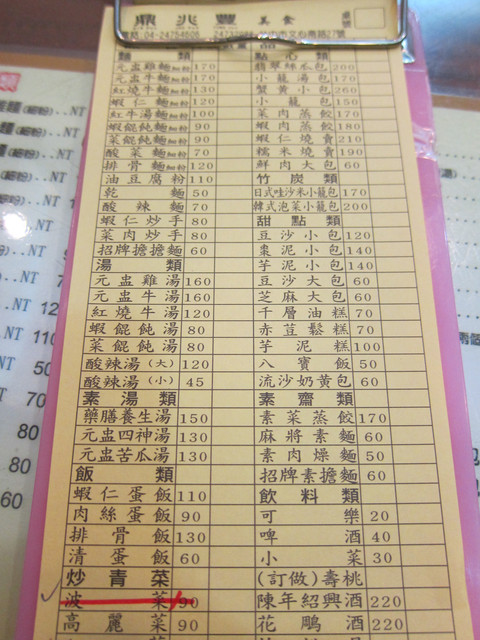 鼎兆豐 美食 桌號
04-24754606
數量 品
麵 類
元盅雞麵 細粉 170
元盅牛麵 細粉 170
紅燒牛麵 細粉 130
蝦仁麵 細粉 120
紅牛湯麵 細粉 100
蝦餛飩麵 細粉 90
菜餛飩麵 細粉 90
酸菜麵 細粉 70
排骨麵 細粉 120
油豆腐粉 110
乾麵 50
酸辣麵 70
蝦仁炒手 80
菜肉炒手 80
招牌擔擔麵 60
湯類
元盅雞湯 160
元盅牛湯 160
紅燒牛湯 120
蝦餛飩湯 80
菜餛飩湯 80
酸辣湯(大) 120
酸辣湯(小) 45
素湯類
藥膳養生湯 150
元盅四神湯 130
元盅苦瓜湯 130
飯類
蝦仁蛋飯 110
肉絲蛋飯 90
排骨飯 130
清蛋飯 60
炒青菜
波菜 90
高麗菜 90
點心類
翡翠絲瓜包 200
小籠湯包 170
蟹黃小包 260
小籠包 150
菜肉蒸餃 170
蝦肉蒸餃 180
蝦仁燒賣 210
糯米燒賣 190
鮮肉大包 60
竹炭類
日式哇沙米小籠包 170
韓式泡菜小籠包 200
甜點類
豆沙小包 120
棗泥小包 140
芋泥小包 140
豆沙大包 60
芝麻大包 60
千層油糕 70
赤荳鬆糕 70
芋泥糕 100
八寶飯 50
流沙奶黃包 60
素齋類
素菜蒸餃 170
麻將素麵 60
素肉燥麵 50
招牌素擔麵 60
飲料類
可樂 20
啤酒 40
小菜 30
(訂做)壽桃
陳年紹興酒 220
花雕酒 220